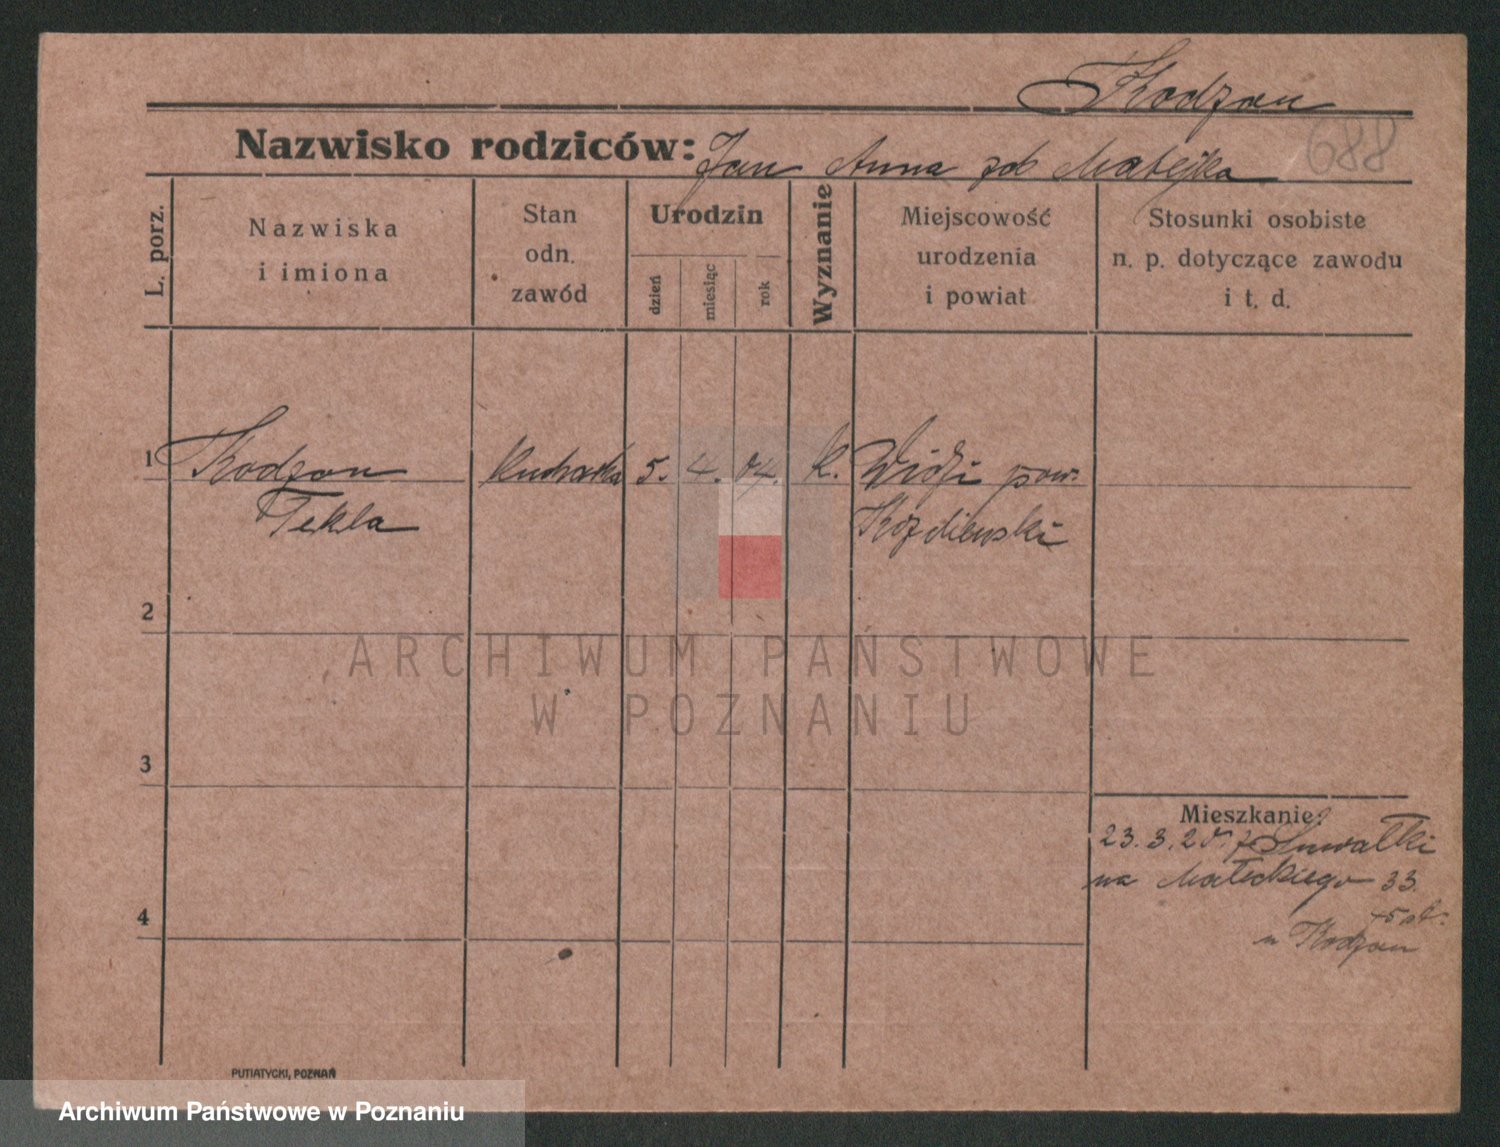 Kodzan
688
Nazwisko rodziców: Jan Anna zd Matejka
L. porz.
Nazwiska
i imiona
Stan
odn.
zawód
Urodzin
dzień
miesiąc
rok
Wyznanie
Miejscowość
urodzenia
i powiat
Stosunki osobiste
n. p. dotyczące zawodu
i t. d.
1 Kodzan kucharka 5. 4. 04. k. pow.
Tekla
2
ARCHIWUM PAŃSTWOWE
W POZNANIU
3
Mieszkanie:
23. 3. z Suwałki
na Małeckiego 33.
4
u Kodzan
PUTIATYCKI, POZNAŃ
Archiwum Państwowe w Poznaniu